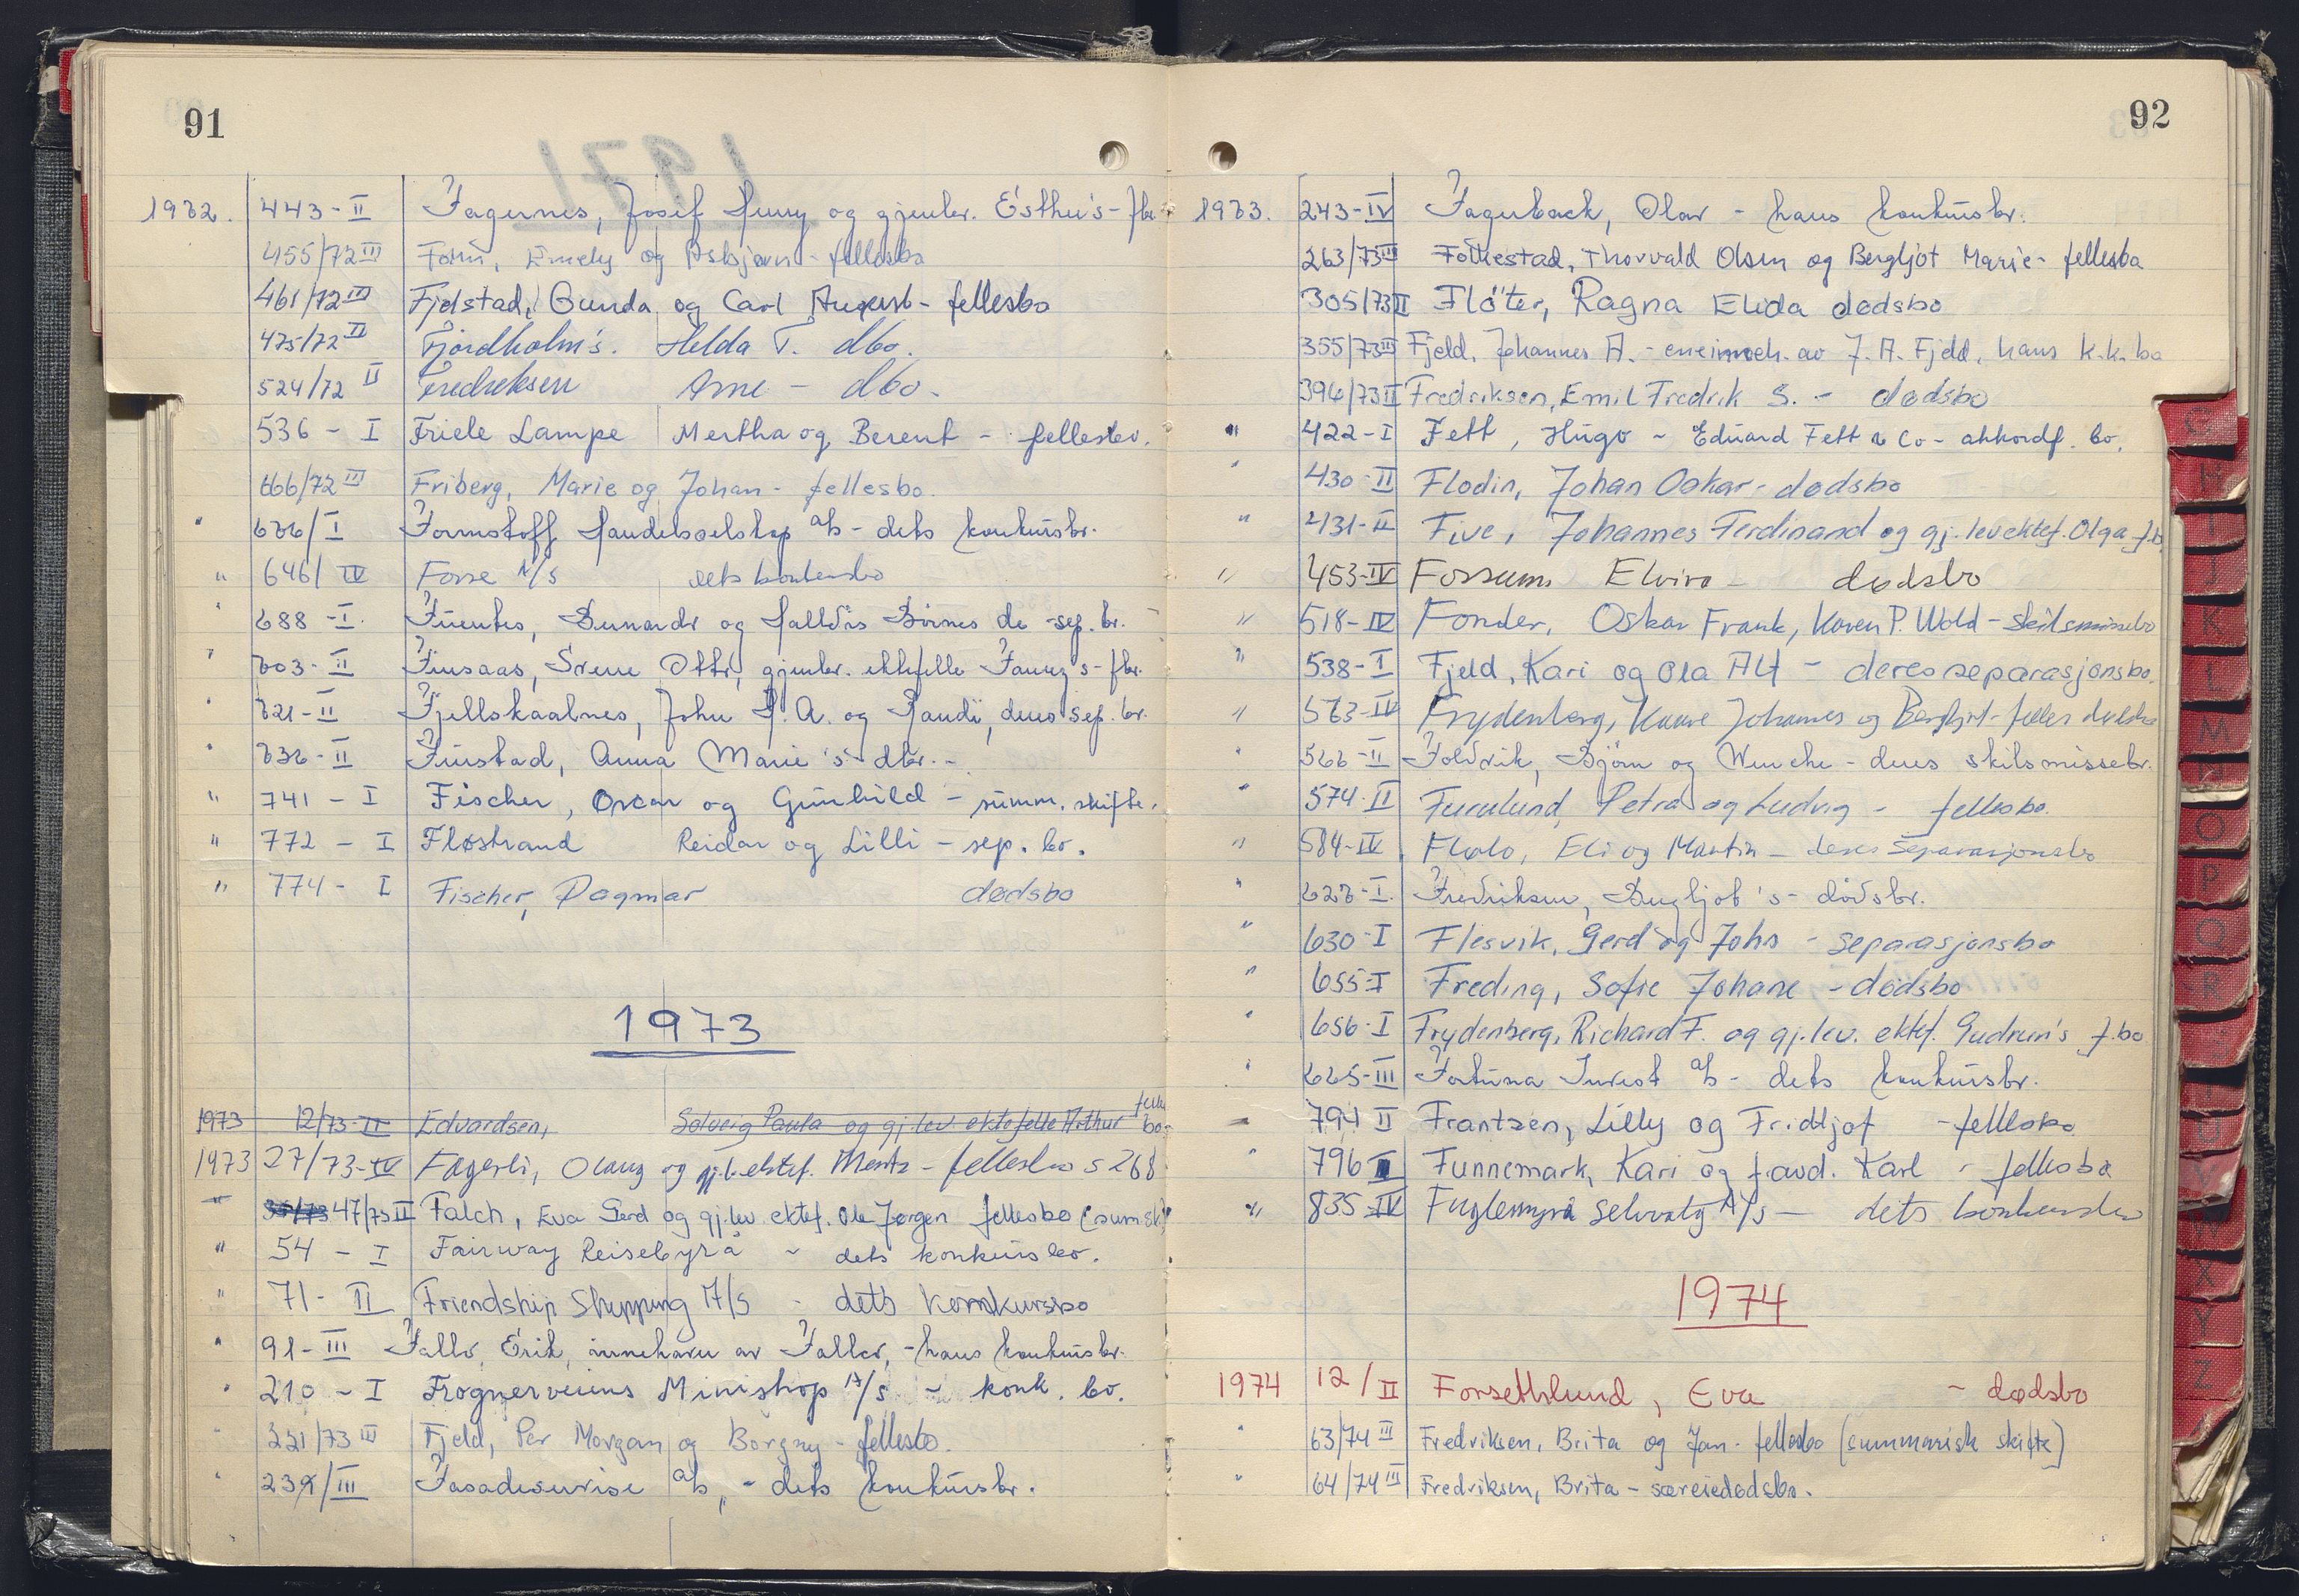 91
1972. 443-II Fagernes, Josef Henry og gjenlev. Esther's - fbo
455/72 III Emely og Asbjørn - fellesbo
461/72 III Fjelstad, Gunda og Carl August - fellesbo
475/72 II Fjordholm's. Helda T. dbo.
524/72 II Fredriksen Arne - dbo.
536 - I Friele Lampe Mertha og Berent - fellesbo.
666/72 III Friberg, Marie og Johan - fellesbo.
" 636/I Formstoff Handelsselskap a/s - dets konkursbo.
" 646/IV Forse A/S dets konkursbo
" 688 - I. Fuentes, og Halldis de - sep. bo.
" 703 - II Fursaas, Otto, gjenlev. ektefelle Fanny's - fbo.
" 721 - II Fjellskaalnes, John H. A. og Randi, deres sep. bo.
" 736 - II Furstad, Anna Marie's dbo. -
" 741 - I Fischer, Oscar og Gunhild - summ. skifte.
" 772 - I Fløstrand Reidar og Lilli - sep. bo.
" 774 - I Fischer, Dagmar dødsbo
1973
1973 12/73-IV Edvardsen, Solveig Paula og gj lev. ektefelle Arthur bo.
1973 27/73-IV Fagerli, Olaug og gj.l. ektef. Mentz - fellesbo s 268
" 47/73 II Falch, Eva Gerd og gj.lev. ektef. Ole Jørgen fellesbo (sum sk)
" 54 - I Fairway Reisebyrå - dets konkursbo.
" 71 - II Friendship Shipping A/S - dets konkursbo
" 91 - III Faller, Erik, innehaver av Faller, - hans konkursbo.
" 210 - I Frognerveiens Minishop A/S - konk. bo.
" 221/73 III Fjeld, Per Morgan og Borgny - fellesbo.
" 239/III Fasadeservice a/s, - dets konkursbo.
92
1973. 243-IV Fagerbach, Olav - hans konkursbo.
263/73 III Folkestad, Thorvald Olsen og Bergljot Marie - fellesbo
305/73 II Fløter, Ragna Elida dødsbo
355/73 III Fjeld, Johannes A. - eneinneh. av J. A. Fjeld, hans k.k. bo
396/73 II Fredriksen, Emil Fredrik S. - dødsbo
" 422 - I Fett, Hugo - Eduard Fett & Co - akkordf. bo.
" 430 - II Flodin, Johan Oskar - dødsbo
" 431 - II Five, Johannes Ferdinand og gj. lev ektef. Olga f.b.
" 453-IV Fossum Elvira - dødsbo
" 518-IV Fonder, Oskar Frank, Karen P. Wold - skilsmissebo
" 538 - I Fjeld, Kari og Ola Alf - deres separasjonsbo.
" 563-IV Frydenberg, Kaare Johannes og Bergljot - felles dødsbo
" 566 - II Foldvik, Bjørn og Wenche - deres skilsmissebo.
" 574 - II Furulund, Petra og Ludvig - fellesbo.
" 584-IV Flolo, Eli og Martin - deres separasjonsbo
" 627 - I. Fredriksen, Bergljot's - dødsbo.
" 630 - I Flesvik, Gerd og John - separasjonsbo
" 655-I Freding, Sofie Johane - dødsbo
" 656 - I Frydenberg, Richard F. og gj.lev. ektef. Gudrun's f.bo
" 665-III Fortuna Invest a/s - dets konkursbo.
" 794 II Frantzen, Lilly og Fridtjof - fellesbo
" 796 Funnemark, Kari og f.avd. Karl - fellesbo
" 835-IV Fuglemyra selvvalg A/S - dets konkursbo
1974
1974 12/II Forsethlund, Eva - dødsbo
" 63/74 III Fredriksen, Brita og Jan - fellesbo (summarisk skifte)
" 64/74 III Fredriksen, Brita - særeiedødsbo.
K
L
M
O
P
Q
R
X
Y
Z